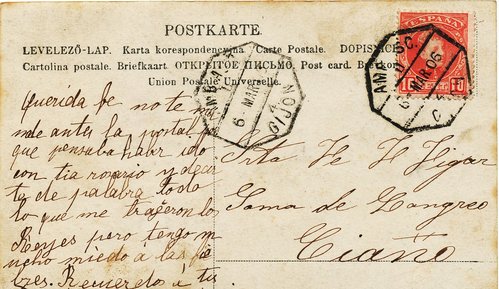 POSTKARTE.
LEVELEZŐ-LAP. Karta korespondencyjna Carte Postale. DOPISNICE
Cartolina postale. Briefkaart. ОТКРЫТОЕ ПИСЬМО. Post card.
Union Postale Universelle.
ESPAÑA
6 MAR
GIJON
AMB.
MAR 06
Querida Fe no te man
de antes la postal
que pensaba haber ido
con tia rosario y decir
te de palabra todo
lo que me trageron los
Reyes pero tengo m
ucho miedo a las fie
Recuerdo a tu
Srta Fe
Sama de Langreo
Ciaño